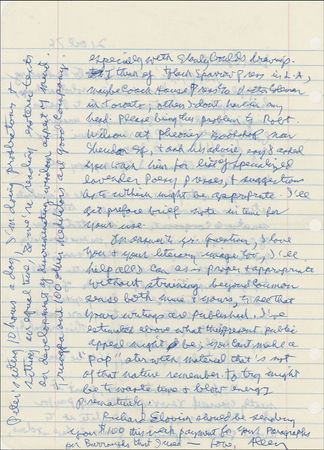 21 Oct 76
especially with Shady Goulds drawings.
I think of Black Sparrow Press in L.A.,
maybe Coach House Press
in Toronto; others I don't have in my
head. Please bring this problem to Robt.
Wilson at Phoenix Bookshop near
Sheridan Sq, & ask his advice, say I asked
you to ask him for list of specialized
lavender Poesy presses, & suggestions
as to which might be appropriate. I'll
get preface brief note in time for
your use.
In answer to yr question, I love
you & your literary image too, I'll
help all I can as is proper & appropriate
without straining beyond common
sense both mine & yours, to see that
your writings are published. I've
estimated above what the present public
appeal might be; you can't make a
"pop" with material that's not
of that nature remember to try might
be to waste time & blow energy
prematurely.
Richard Elovich should be sending
you $100 this week payment for your Paragraphs
for Burroughs that I used — Love, Allen
Peter's sitting 10 hours a day, I'm doing prostrations &
sitting an equal time,
on development of discriminating wisdom aspect of mind.
Trungpa and 100 other meditators are good company.